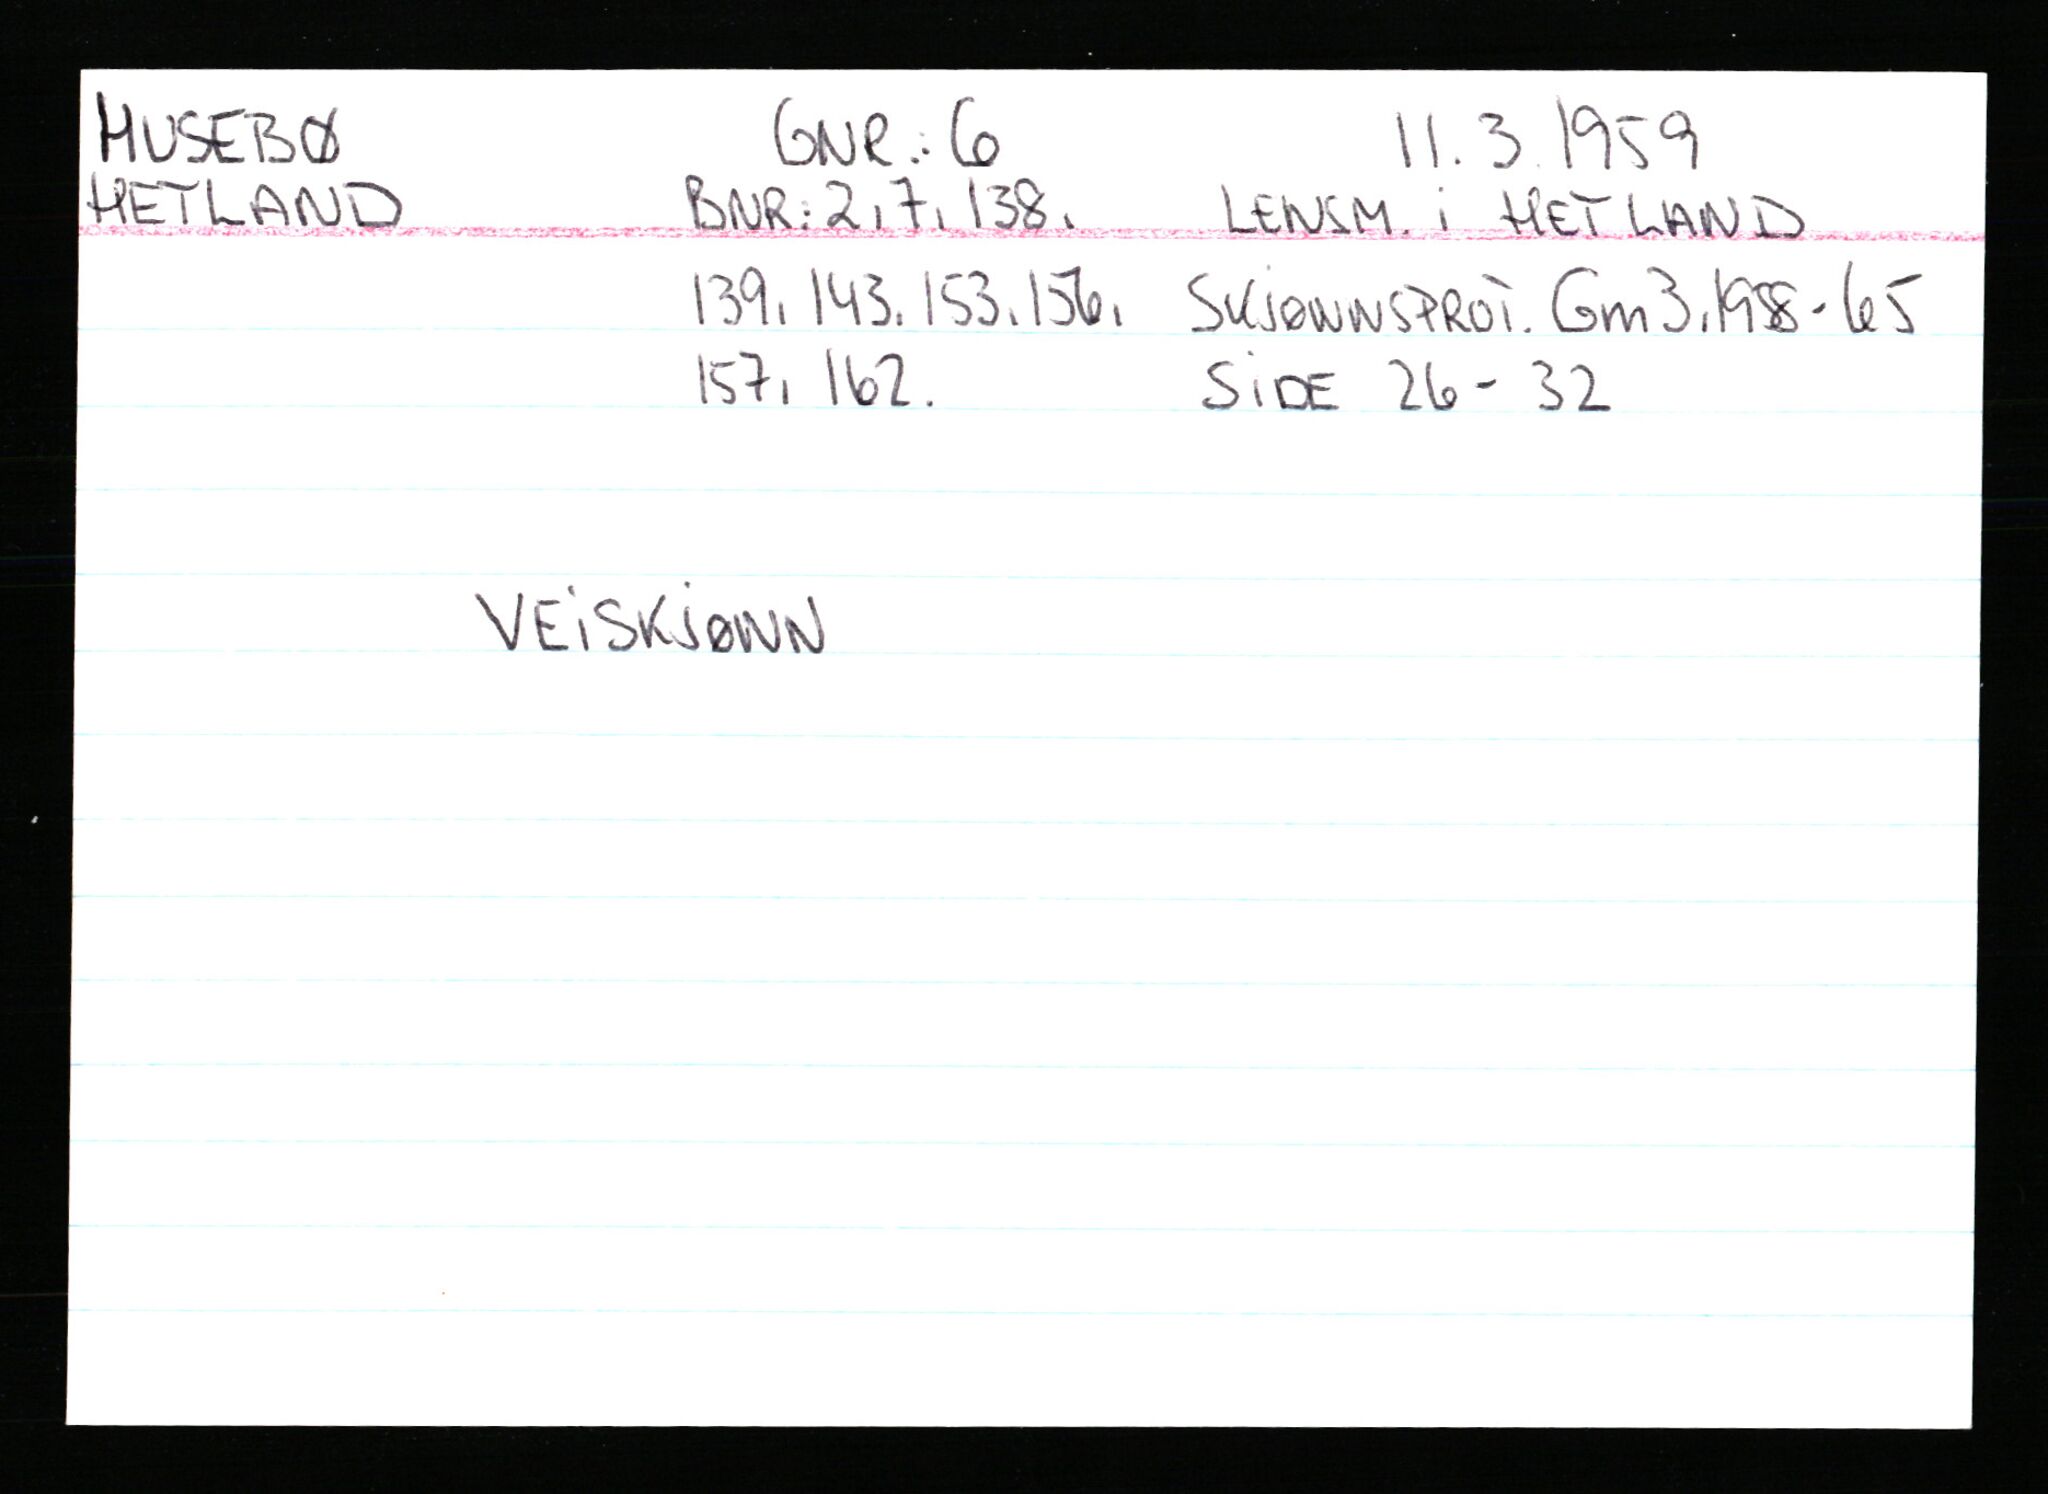 HUSEBØ GNR.: 6 11.3.1959
HETLAND BNR: 2, 7, 138, LENSM. i HETLAND
139, 143, 153, 156, SKJØNNSPROT. Gm3, 1958-65
157, 162. SIDE 26-32
VEISKJØNN